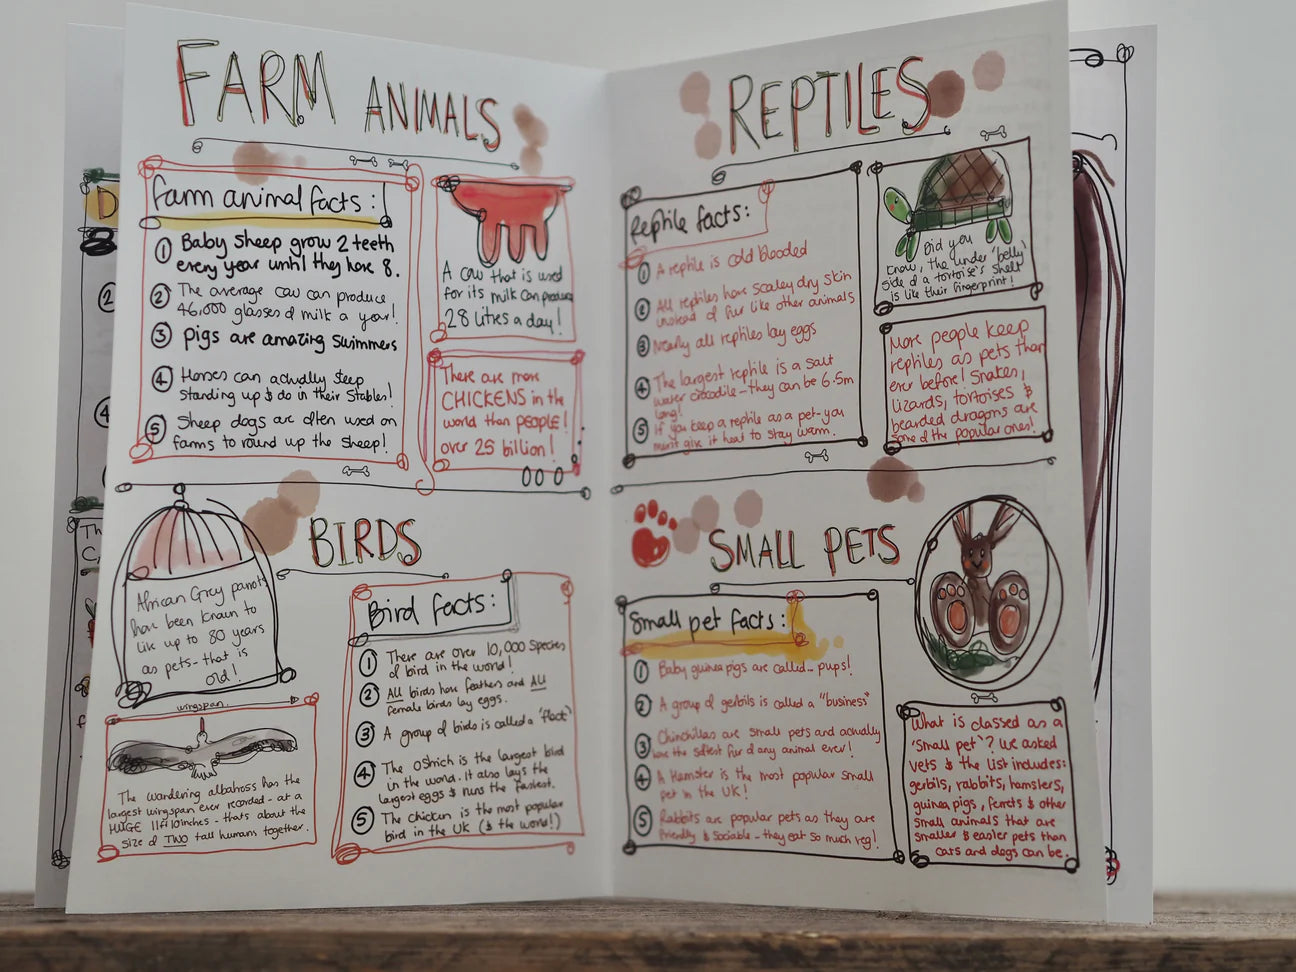 FARM ANIMALS
farm animal facts:
1 Baby sheep grow 2 teeth
every year until they have 8.
2 The average cow can produce
46,000 glasses of milk a year!
3 pigs are amazing swimmers
4 Horses can actually sleep
standing up & do in their stables!
5 Sheep dogs are often used on
farms to round up the sheep!
A cow that is used
for its milk can produce
28 litres a day!
There are more
CHICKENS in the
world than people!
over 25 billion!
BIRDS
African Grey parrots
have been known to
live up to 80 years
as pets - that is
old!
wingspan.
The wandering albatross has the
largest wingspan ever recorded - at a
HUGE 11ft 10 inches - thats about the
size of TWO tall humans together.
Bird facts:
1 There are over 10,000 species
of bird in the world!
2 ALL birds have feathers and ALL
female birds lay eggs.
3 A group of birds is called a 'flock'
4 The ostrich is the largest bird
in the world. It also lays the
largest eggs & runs the fastest.
5 The chicken is the most popular
bird in the UK (& the world!)
REPTILES
Reptile facts:
1 A reptile is cold blooded
2 All reptiles have scaley dry skin
instead of fur like other animals
3 Nearly all reptiles lay eggs
4 The largest reptile is a salt
water crocodile - they can be 6.5m
long!
5 If you keep a reptile as a pet - you
must give it heat to stay warm.
Did you
know, the under 'belly'
side of a tortoise's shell
is like their fingerprint!
More people keep
reptiles as pets than
ever before! Snakes,
lizards, tortoises &
bearded dragons are
some of the popular ones!
SMALL PETS
Small pet facts:
1 Baby guinea pigs are called... pups!
2 A group of gerbils is called a "business"
3 Chinchillas are small pets and actually
have the softest fur of any animal ever!
4 A Hamster is the most popular small
pet in the UK!
5 Rabbits are popular pets as they are
friendly & sociable - they eat so much veg!
What is classed as a
'small pet'? We asked
vets & the list includes:
gerbils, rabbits, hamsters,
guinea pigs, ferrets & other
small animals that are
smaller & easier pets than
cats and dogs can be.
D
2
4
Th